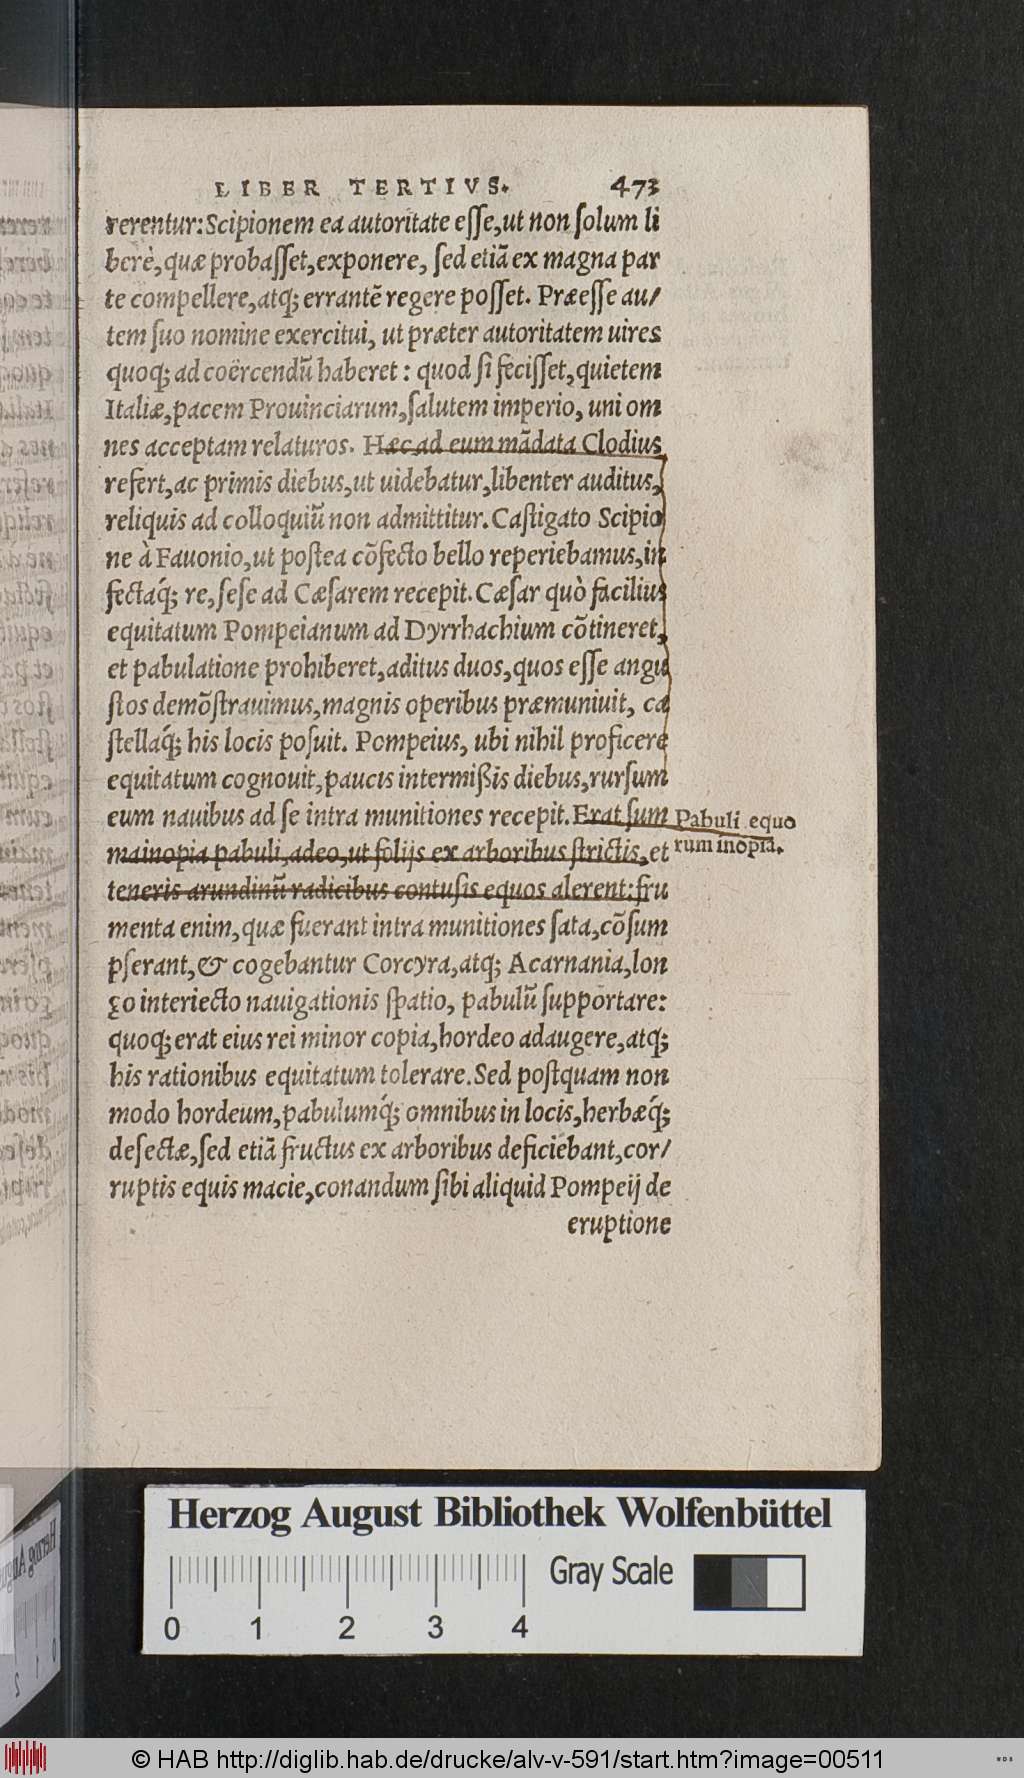 LIBER TERTIVS. 473
rerentur: Scipionem ea autoritate eſſe, ut non ſolum li
berè, quæ probaſſet, exponere, ſed etiã ex magna par
te compellere, atq; errantẽ regere poſſet. Præeſſe au/
tem ſuo nomine exercitui, ut præter autoritatem uires
quoq; ad coërcendũ haberet: quod ſi feciſſet, quietem
Italiæ, pacem Prouinciarum, ſalutem imperio, uni om
nes acceptam relaturos. Hæc ad eum mãdata Clodius
refert, ac primis diebus, ut uidebatur, libenter auditus,
reliquis ad colloquiũ non admittitur. Caſtigato Scipio
ne à Fauonio, ut poſtea cõfecto bello reperiebamus, in
fectaq́; re, ſeſe ad Cæſarem recepit. Cæſar quò facilius
equitatum Pompeianum ad Dyrrhachium cõtineret,
et pabulatione prohiberet, aditus duos, quos eſſe angu
ſtos demõſtrauimus, magnis operibus præmuniuit, ca
ſtellaq́; his locis poſuit. Pompeius, ubi nihil proficere
equitatum cognouit, paucis intermiſsis diebus, rurſum
eum nauibus ad ſe intra munitiones recepit. Erat ſum
mainopia pabuli, adeo, ut folijs ex arboribus ſtrictis, et
teneris arundinũ radicibus contuſis equos alerent: fru
menta enim, quæ fuerant intra munitiones ſata, cõſum
pſerant, & cogebantur Corcyra, atq; Acarnania, lon
go interiecto nauigationis ſpatio, pabulũ ſupportare:
quoq; erat eius rei minor copia, hordeo adaugere, atq;
his rationibus equitatum tolerare. Sed poſtquam non
modo hordeum, pabulumq́; omnibus in locis, herbæq́;
deſectæ, ſed etiã fructus ex arboribus deficiebant, cor/
ruptis equis macie, conandum ſibi aliquid Pompeij de
eruptione
Pabuli equo
rum inopia.
Herzog August Bibliothek Wolfenbüttel
Gray Scale
0 1 2 3 4
© HAB http://diglib.hab.de/drucke/alv-v-591/start.htm?image=00511